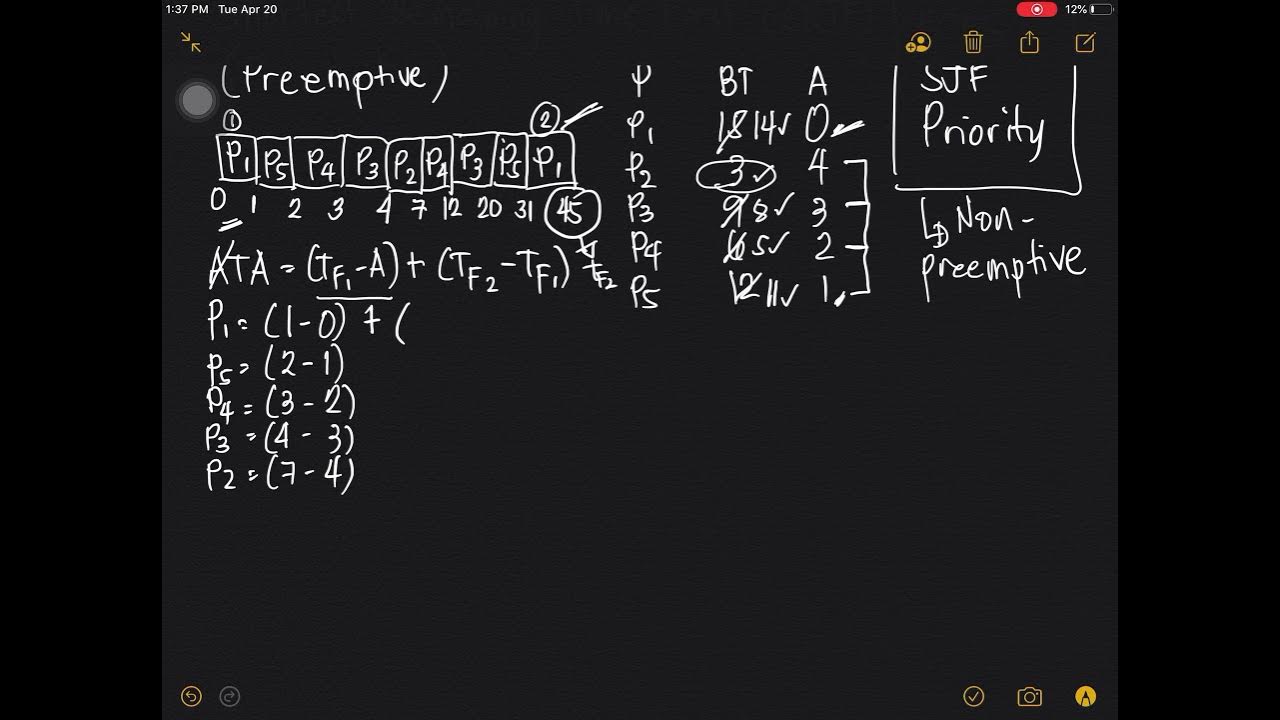 1:37 PM Tue Apr 20
12%
(Preemptive)
① ②
P1 P5 P4 P3 P2 P4 P3 P5 P1
0 1 2 3 4 7 12 20 31 45
ATA = (TF1 - A) + (TF2 - TF1) TF2
P1 = (1 - 0) + (
P5 = (2 - 1)
P4 = (3 - 2)
P3 = (4 - 3)
P2 = (7 - 4)
BT A
P1 14 ✓ 0
P2 3 ✓ 4
P3 9 8 ✓ 3
P4 6 5 ✓ 2
P5 12 11 ✓ 1
SJF
Priority
↳ Non-
preemptive